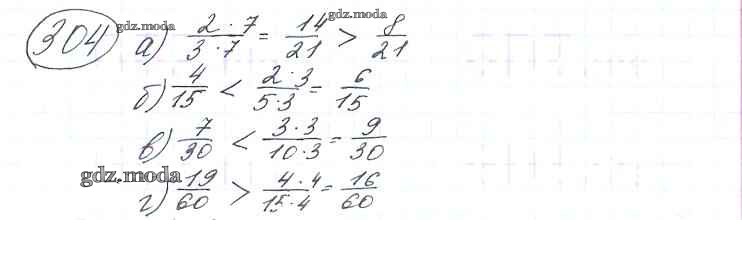 304 gdz.moda gdz.moda
а) 2·7/3·7 = 14/21 > 8/21
б) 4/15 < 2·3/5·3 = 6/15
в) 7/30 < 3·3/10·3 = 9/30
gdz.moda
г) 19/60 > 4·4/15·4 = 16/60